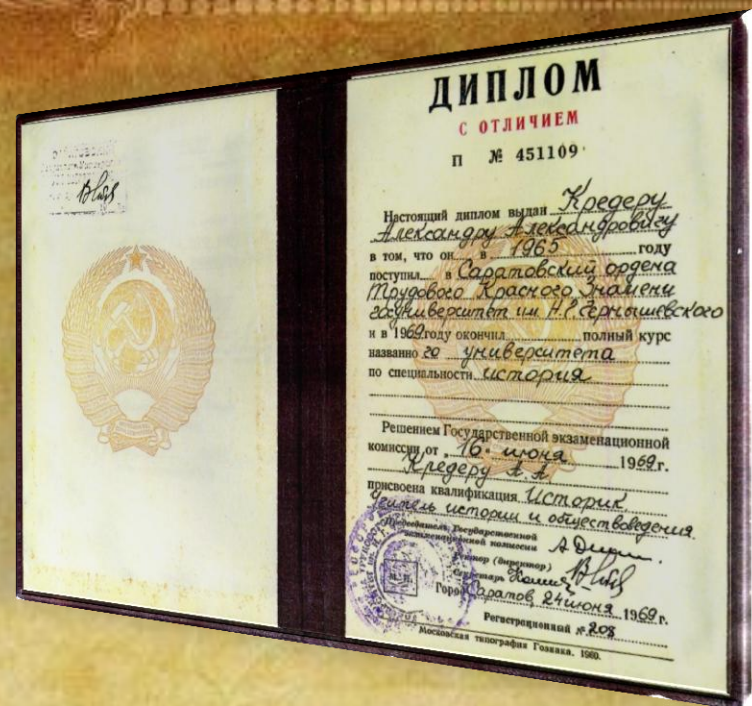 ДИПЛОМ
С ОТЛИЧИЕМ
П № 451109
Настоящий диплом выдан Кредеру
Александру Александровичу
в том, что он в 1965 году
поступил в Саратовский ордена
Трудового Красного Знамени
госуниверситет им. Н.Г. Чернышевского
и в 1969 году окончил полный курс
названного университета
по специальности история
Решением Государственной экзаменационной
комиссии от „16“ июня 1969 г.
Кредеру А.А.
присвоена квалификация Историк
Учитель истории и обществоведения.
Председатель Государственной
экзаменационной комиссии
Ректор (директор)
Секретарь
М. П.
Город Саратов, 24 июня 1969 г.
Регистрационный № 208
Московская типография Гознака. 1960.